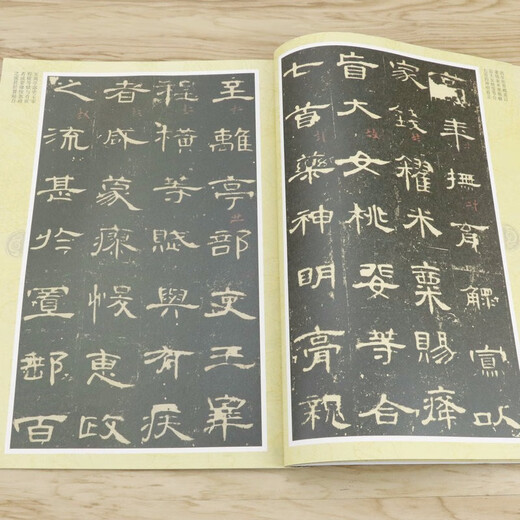 高年撫育鰥寡以
家錢糴米粟賜癃
盲大女桃婓等合
七首藥神明膏親
至離亭部吏王皐
程橫等賦與有疾
者咸蒙瘳悛惠政
之流甚於置郵百